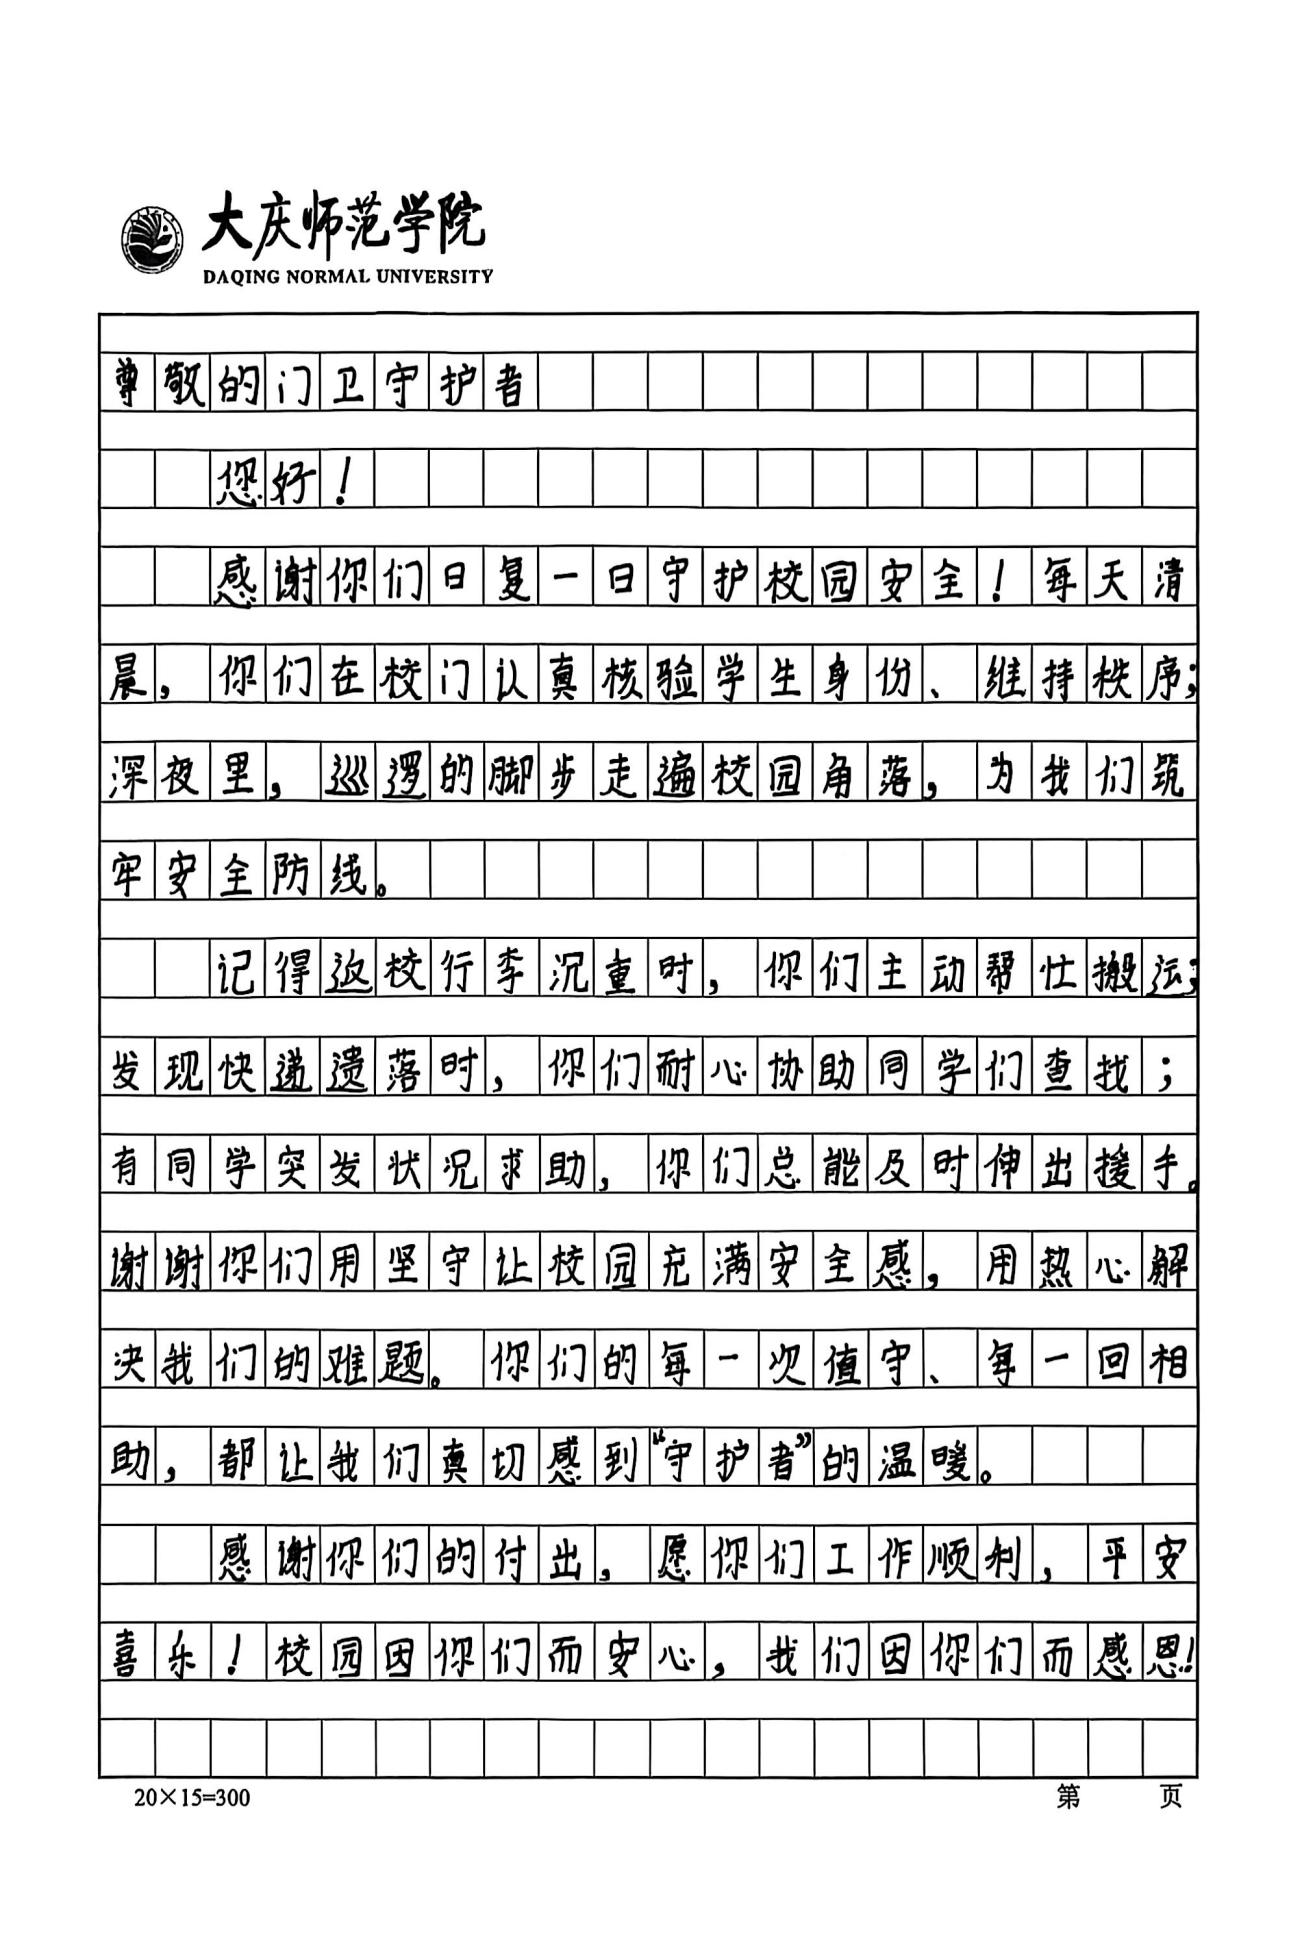 大庆师范学院
DAQING NORMAL UNIVERSITY
尊敬的门卫守护者
您好！
感谢你们日复一日守护校园安全！每天清
晨，你们在校门认真核验学生身份、维持秩序；
深夜里，巡逻的脚步走遍校园角落，为我们筑
牢安全防线。
记得返校行李沉重时，你们主动帮忙搬运；
发现快递遗落时，你们耐心协助同学们查找；
有同学突发状况求助，你们总能及时伸出援手。
谢谢你们用坚守让校园充满安全感，用热心解
决我们的难题。你们的每一次值守、每一回相
助，都让我们真切感到“守护者”的温暖。
感谢你们的付出，愿你们工作顺利，平安
喜乐！校园因你们而安心，我们因你们而感恩！
20×15=300 第 页